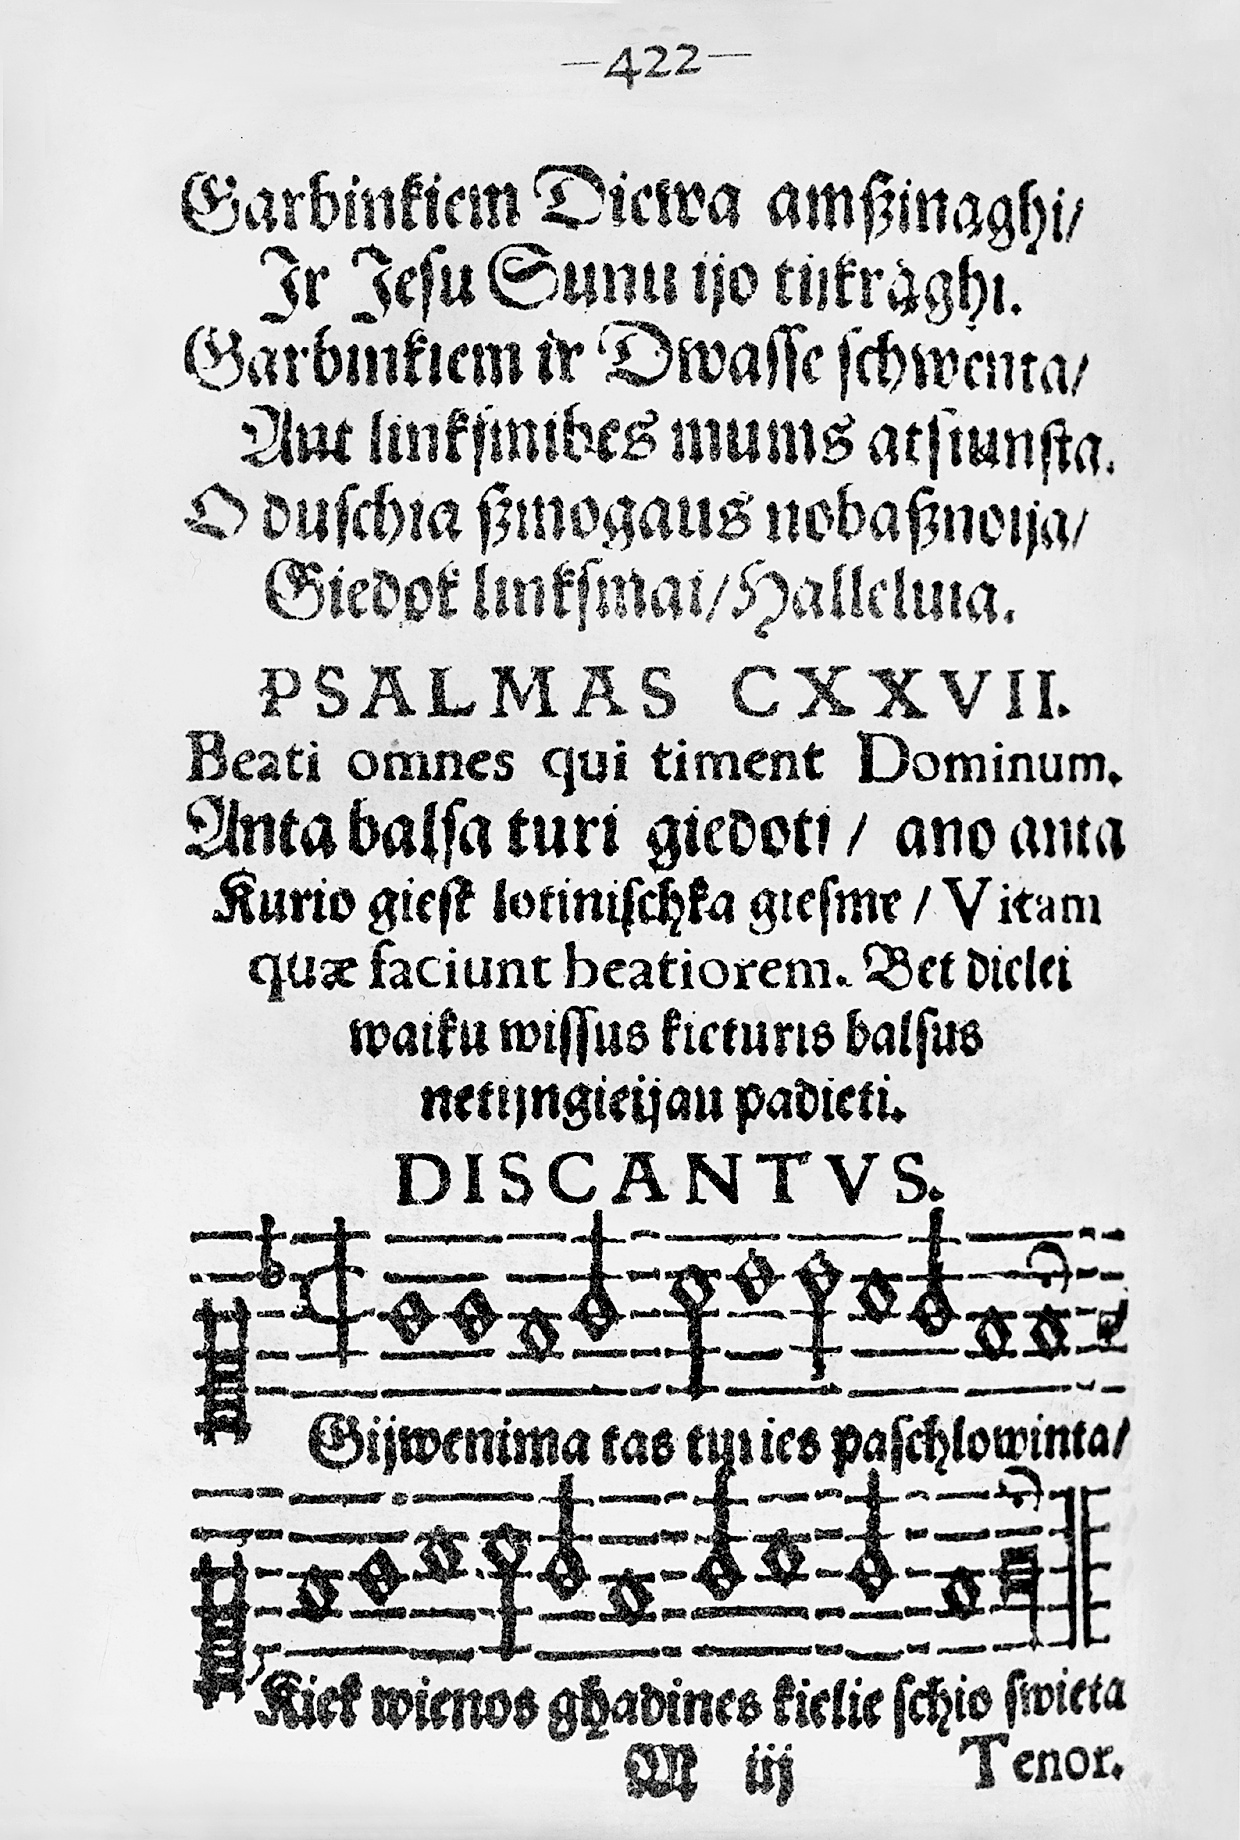 —422—
Garbinkiem Diewa amßinąghi/
Ir Jesu Sunu ijo tijkrąghi.
Garbinkiem ir Dwasse schwenta/
Ant linksmibes mums atsiunsta.
O duschia ßmogaus nobaßnoija/
Giedok linksmai/Halleluia.
PSALMAS CXXVII.
Beati omnes qui timent Dominum.
Anta balsa turi giedoti / ano anta
Kurio giest lotinischka giesme / Vitam
quæ faciunt beatiorem. Bet dielei
waiku wissus kicturis balsus
netijngieijau padieti.
DISCANTVS.
Gijwenima tas turies paschlowinta/
Kiek wienos ghadines kielie schio swieta
M iij Tenor.